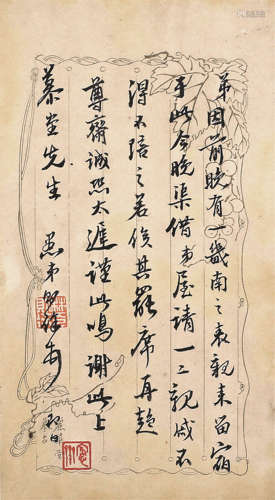 弟因前晚有一畿南之表親来留宿
于此今晚渠借弟屋請一二親戚不
得不陪之若俟其罷席再趨
尊齋誠恐太遲謹此鳴謝此上
慕堂先生 愚弟